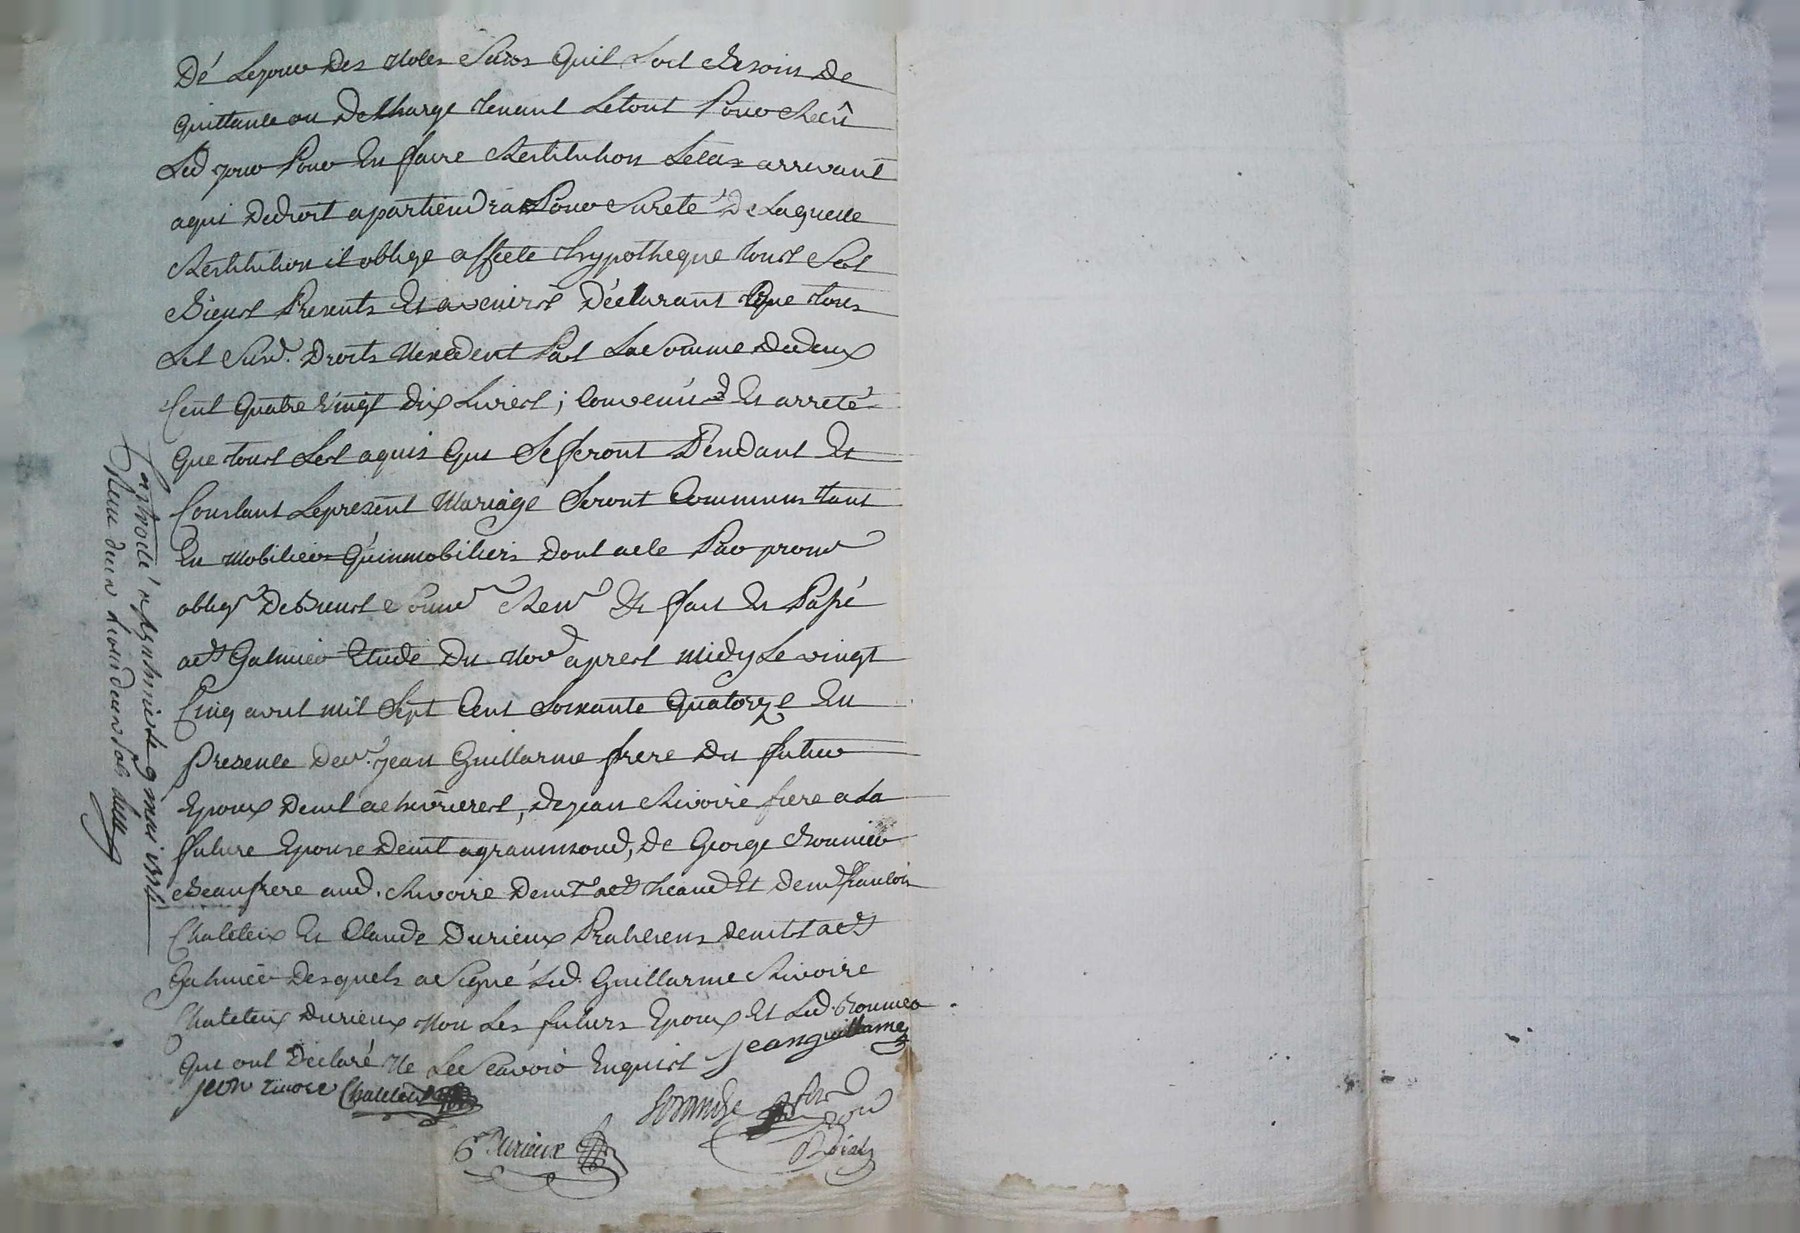 Dé Lejour des Noles Sans quil soit Besoin De
quittance ou Décharge tenant Letout Pour Recû
Led jour Pour En faire Restitution Lecas arrivant
aqui dedroit apartiendra Pour Sureté De Laquelle
Restitution il oblige affecte hypotheque tous Ses
Biens Presents Et avenirs Déclarant que tous
Les Susd. Droits Nexcedent Pas La Somme dedeux
Cent quatre vingt dix Livres ; Convenû Et arreté
que tous Les aquis qui Seferont Pendant Et
Constant Lepresent Mariage Seront Communs tant
En Mobiliers quimmobiliers Dont acte Par prom
oblig Debiens Soum Ren Et fait Et Passé
aSt Galmier Etude Du Nore apres Midy Le vingt
Cinq avril Mil Sept Cent Soixante quatorze En
Presence Der. jean Guillarme frere Du futur
Epoux Demt achevrieres, de jean Rivoire frere ala
future Epouse Demt agrammond, de George Bonnier
Beaufrere aud. Rivoire Demt aSt heand Et Demr francois
Chaleteix Et Claude Durieux Praticiens demts aSt
Galmier desquels asigné Led. Guillarme Rivoire
Chaleteix Durieux Non Les futurs Epoux Et Led. Bonnier
qui ont Déclaré Ne Le Scavoir Enquis jean guillarme
jean rivoire Chaleteix
Durieux
Controllé a St galmier le 9 mai 1774
Reçu